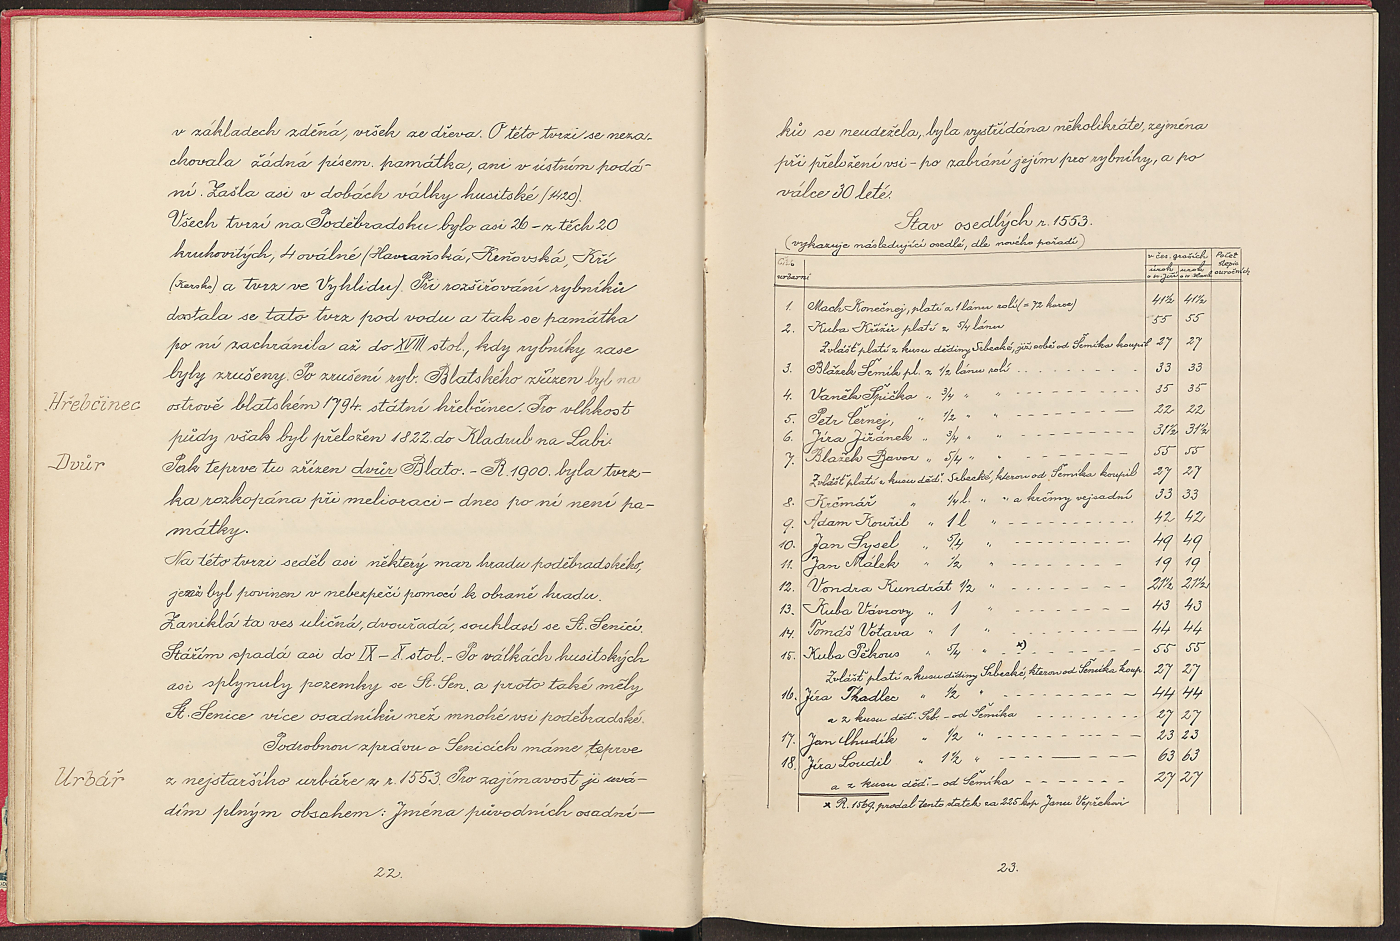 v základech zděná, vršek ze dřeva. O této tvrzi se neza-
chovala žádná písem. památka, ani v ústním podá-
ní. Zašla asi v dobách války husitské (1420).
Všech tvrzí na Poděbradsku bylo asi 26 - z těch 20
hruhovitých, 4 oválné (Havraňská, Křňovská, Kří
(Kersko) a tvrz ve Vyhlidu). Při rozšiřování rybníků
dostala se tato tvrz pod vodu a tak se památka
po ní zachránila až do XVIII stol., kdy rybníky zase
byly zrušeny. Po zrušení ryb. Blatského zřízen byl na
Hřebčinec
ostrově blatském 1794. státní hřebčinec. Pro vlhkost
půdy však byl přeložen 1822. do Kladrub na Labi.
Dvůr
Pak teprve tu zřízen dvůr Blato. - R. 1900. byla tvrz-
ka rozkopána při melioraci - dnes po ní není pa-
mátky.
Na této tvrzi seděl asi některý man hradu poděbradského,
jenž byl povinen v nebezpečí pomoci k obraně hradu.
Zaniklá ta ves uličná, dvouřadá, souhlasí se St. Senicí.
Stářím spadá asi do IX - X stol. - Po válkách husitských
asi splynuly pozemky se St. Sen. a proto také měly
St. Senice více osadníků než mnohé vsi poděbradské.
Podrobnou zprávu o Senicích máme teprve
Urbář
z nejstaršího urbáře z r. 1553. Pro zajímavost ji uvá-
dím plným obsahem: Jména původních osadní-
22.
ků se neudržela, byla vystřídána několikráte, zejména
při přeložení vsi - po zabrání jejím pro rybníky, a po
válce 30 leté.
Stav osedlých r. 1553.
(vykazuje následující osedlé, dle nového pořadí)
Čís. urbární
v čes. groších
úrok o sv. Jiří
úrok o sv. Havl.
Počet slepic ouročních
1. Mach Konečnej, platí a 1 lánu rolí (= 72 korce) 41½ 41½
2. Kuba Křížir platí z 5/4 lánu 55 55
Zvlášť platí z kusu dědiny Srbecké, již sobě od Šemíka koupil 27 27
3. Blažek Šemík pl. z 1/2 lánu rolí - - - 33 33
4. Vaněk Špička " 3/4 " " - - - 35 35
5. Petr Černej, " 1/2 " " - - - 22 22
6. Jíra Jiřánek " 3/4 " " - - - 31½ 31½
7. Blažek Bavor " 5/4 " " - - - 55 55
Zvlášť platí z kusu děd. Srbecké, kterou od Šemíka koupil 27 27
8. Krčmář " 1/4 l. " " a krčmy vejsadní 33 33
9. Adam Kouřil " 1 l " - - - 42 42
10. Jan Sysel " 5/4 " - - - 49 49
11. Jan Málek " 1/2 " - - - 19 19
12. Vondra Kundrát 1/2 " - - - 21½ 21½
13. Kuba Vávrovy " 1 " - - - 43 43
14. Tomáš Votava " 1 " - - - 44 44
15. Kuba Pekous " 5/4 " - x) - - - 55 55
Zvlášť platí z kusu dědiny Srbecké, kterou od Šemíka koup. 27 27
16. Jíra Thadlec " 1/2 " - - - 44 44
a z kusu děd. Srb. - od Šemíka - - - 27 27
17. Jan Chudík " 1/2 " - - - 23 23
18. Jíra Loudil " 1½ " - - - 63 63
a z kusu děd. - od Šemíka - - - 27 27
x R. 1569. prodal tento statek za 225 kop Janu Vepřekovi
23.